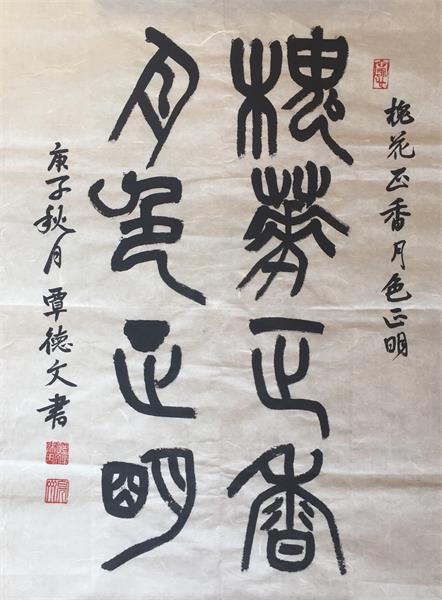 槐花正香月色正明
槐華正香
月色正明
庚子秋月覃德文書